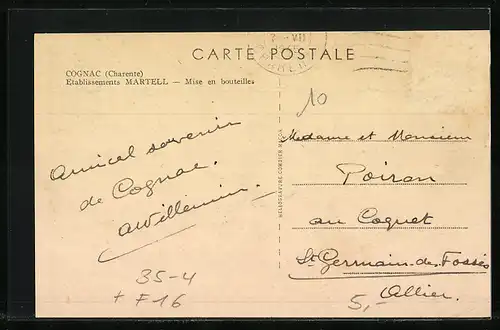 CARTE POSTALE
COGNAC (Charente)
Etablissements MARTELL — Mise en bouteilles
10
Amical souvenir
de Cognac.
AWillemin.
Madame et Monsieur
Poiron
au Coquet
St Germain des Fossés
Allier.
35-4
+ F16
5,-